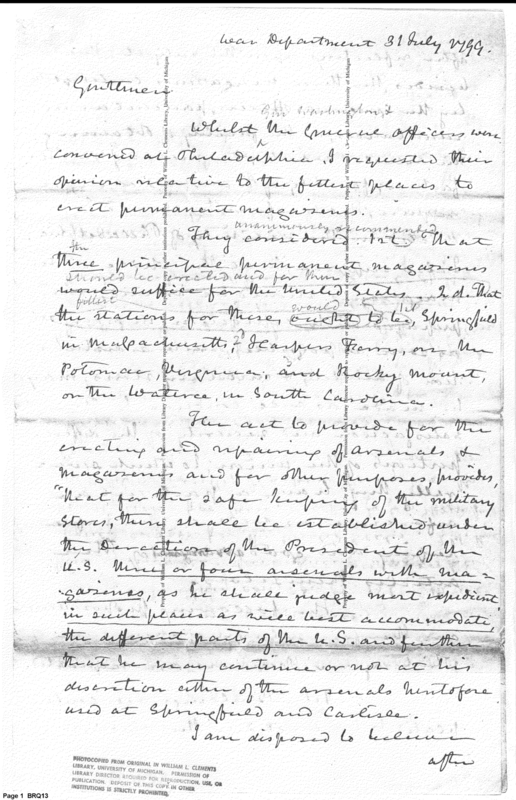 War Department 31 July 1799.
Gentlemen
Whilst the General officers were
convened at Philadelphia, I requested their
opinion relative to the fittest places to
erect permanent magazines.
unanimously recommended
They considered 1st. That
the
three principal permanent magazines
should be erected and for them
would suffice for the United States 2d. That
fittest would
the stations for these, ought to be, Springfield
in Massachusetts, Harpers Ferry, on the
Potomac Virginia, and Rocky Mount,
on the Wateree, in South Carolina.
The act to provide for the
erecting and repairing of arsenals &
magazines and for other purposes, provides,
"that for the safe keeping of the military
stores, there shall be established under
the Direction of the President of the
U.S. three or four arsenals with ma=
gazines, as he shall judge most expedient
in such places as will best accommodate,
the different parts of the U.S. and further
that he may continue or not at his
discretion either of the arsenals heretofore
used at Springfield and Carlisle.
I am disposed to believe
after
PHOTOCOPIED FROM ORIGINAL IN WILLIAM L. CLEMENTS
LIBRARY, UNIVERSITY OF MICHIGAN. PERMISSION OF
LIBRARY DIRECTOR REQUIRED FOR REPRODUCTION, USE, OR
PUBLICATION. DEPOSIT OF THIS COPY IN OTHER
INSTITUTIONS IS STRICTLY PROHIBITED.
Page 1 BRQ13